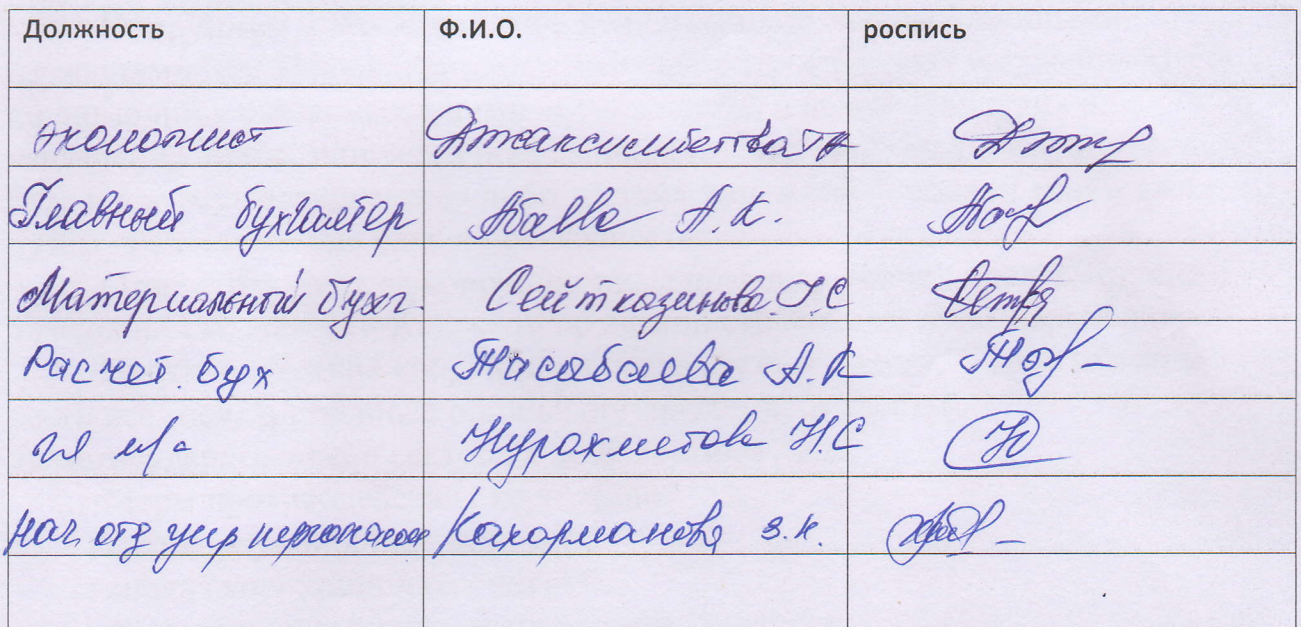 Должность Ф.И.О. роспись
экономист
Главный бухгалтер Абаева А.К.
Материальный бухг. Сейтказинова С
Расчет. бух Тасабаева А.К
гл м/с Нурахметова Н.С
нач. отд упр персоналом Кахарманова З.К.